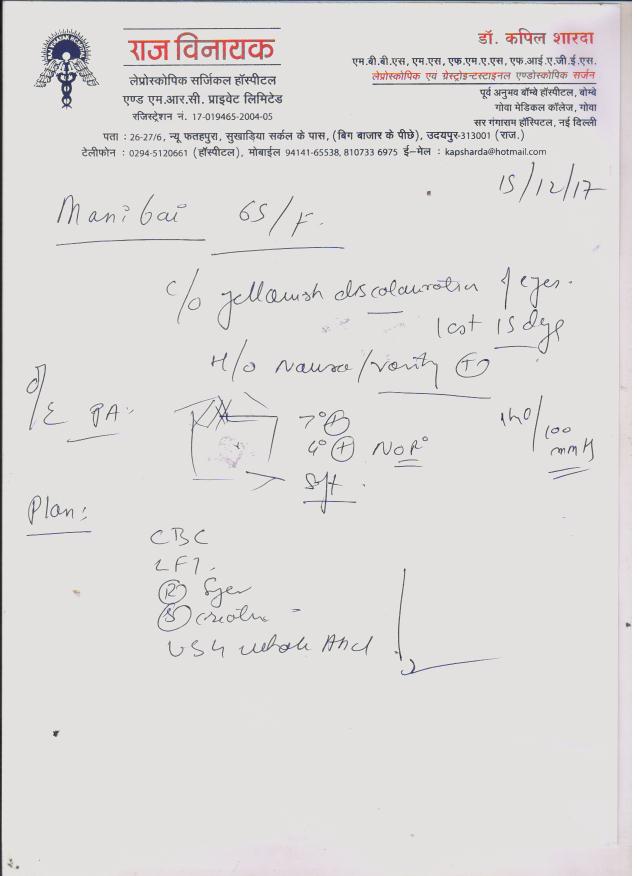 राज विनायक
लेप्रोस्कोपिक सर्जिकल हॉस्पीटल
एण्ड एम.आर.सी. प्राइवेट लिमिटेड
रजिस्ट्रेशन नं. 17-019465-2004-05
डॉ. कपिल शारदा
एम.बी.बी.एस, एम.एस, एफ.एम.ए.एस, एफ.आई.ए.जी.ई.एस.
लेप्रोस्कोपिक एवं गेस्ट्रोइन्टस्टाइनल एण्डोस्कोपिक सर्जन
पूर्व अनुभव बॉम्बे हॉस्पिटल, बोम्बे
गोवा मेडिकल कॉलेज, गोवा
सर गंगाराम हॉस्पिटल, नई दिल्ली
पता : 26-27/6, न्यू फतहपुरा, सुखाड़िया सर्कल के पास, (बिग बाजार के पीछे), उदयपुर-313001 (राज.)
टेलीफोन : 0294-5120661 (हॉस्पीटल), मोबाईल 94141-65538, 810733 6975 ई-मेल : kapsharda@hotmail.com
15/12/17
Manibai 65/F.
c/o yellowish discolouration of eyes.
last 15 days
H/o Nausea/vomiting +
O/E PA:
140/100 mmHg
Soft
Plan:
CBC
LFT.
(R) Sugar
(S) creatin
USG whole Abd